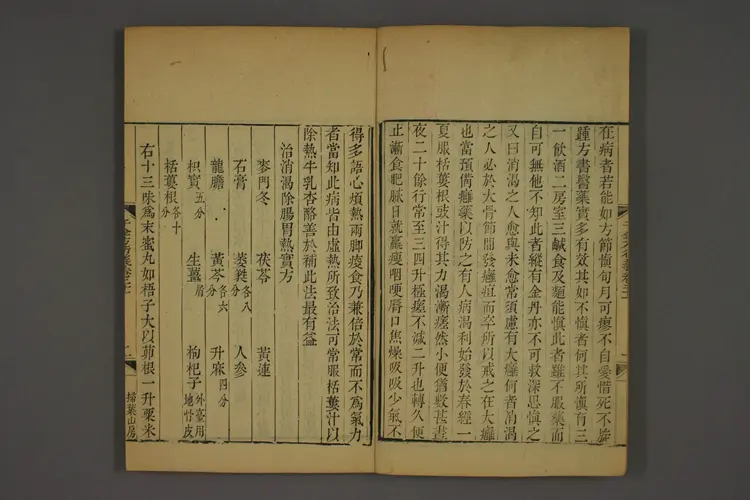 在病者若能如方節慎旬月可瘳不自愛惜死不旋
踵方書醫藥實多有效其如不慎者何其所慎有三
一飲酒二房室三鹹食及麵能慎此者雖不服藥而
自可無他不知此者縱有金丹亦不可救深思慎之
又曰消渴之人愈與未愈常須慮有大癰何者消渴
之人必於大骨節間發癰疽而卒所以戒之在大癰
也當預備癰藥以防之有人病渴利始發於春經一
夏服栝蔞根豉汁得其力渴漸瘥然小便猶數甚晝
夜二十餘行常至三四升極瘥不減二升也轉久便
止漸食肥膩日就羸瘦咽哽唇口焦燥吸吸少氣不
得多語心煩熱兩脚痠食乃兼倍於常而不爲氣力
者當知此病皆由虛熱所致治法可常服栝蔞汁以
除熱牛乳杏酪善於補此法最有益
治消渴除腸胃熱實方
麥門冬 茯苓 黃連
石膏 萎蕤各八分 人參
龍膽 黃芩各六分 升麻四分
枳實五分 生薑屑 枸杞子外臺用地骨皮
栝蔞根各十分
右十三味爲末蜜丸如梧子大以茆根一升粟米
掃葉山房